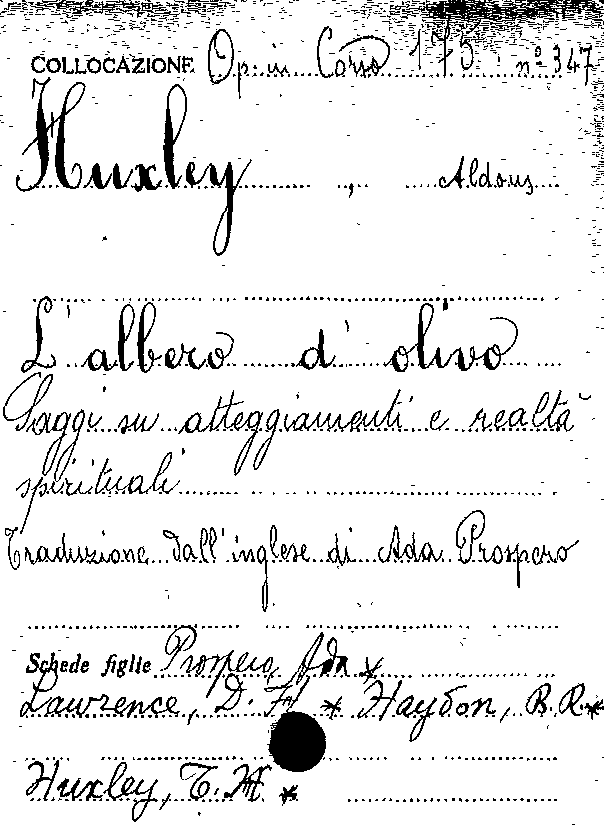 COLLOCAZIONE Op. in Corso 175 nº 347
Huxley, Aldous
L'albero d'olivo
Saggi su atteggiamenti e realtà
spirituali
Traduzione dall'inglese di Ada Prospero
Schede figlie Prospero, Ada *
Lawrence, D. H. * Haydon, B. R. *
Huxley, T. H. *